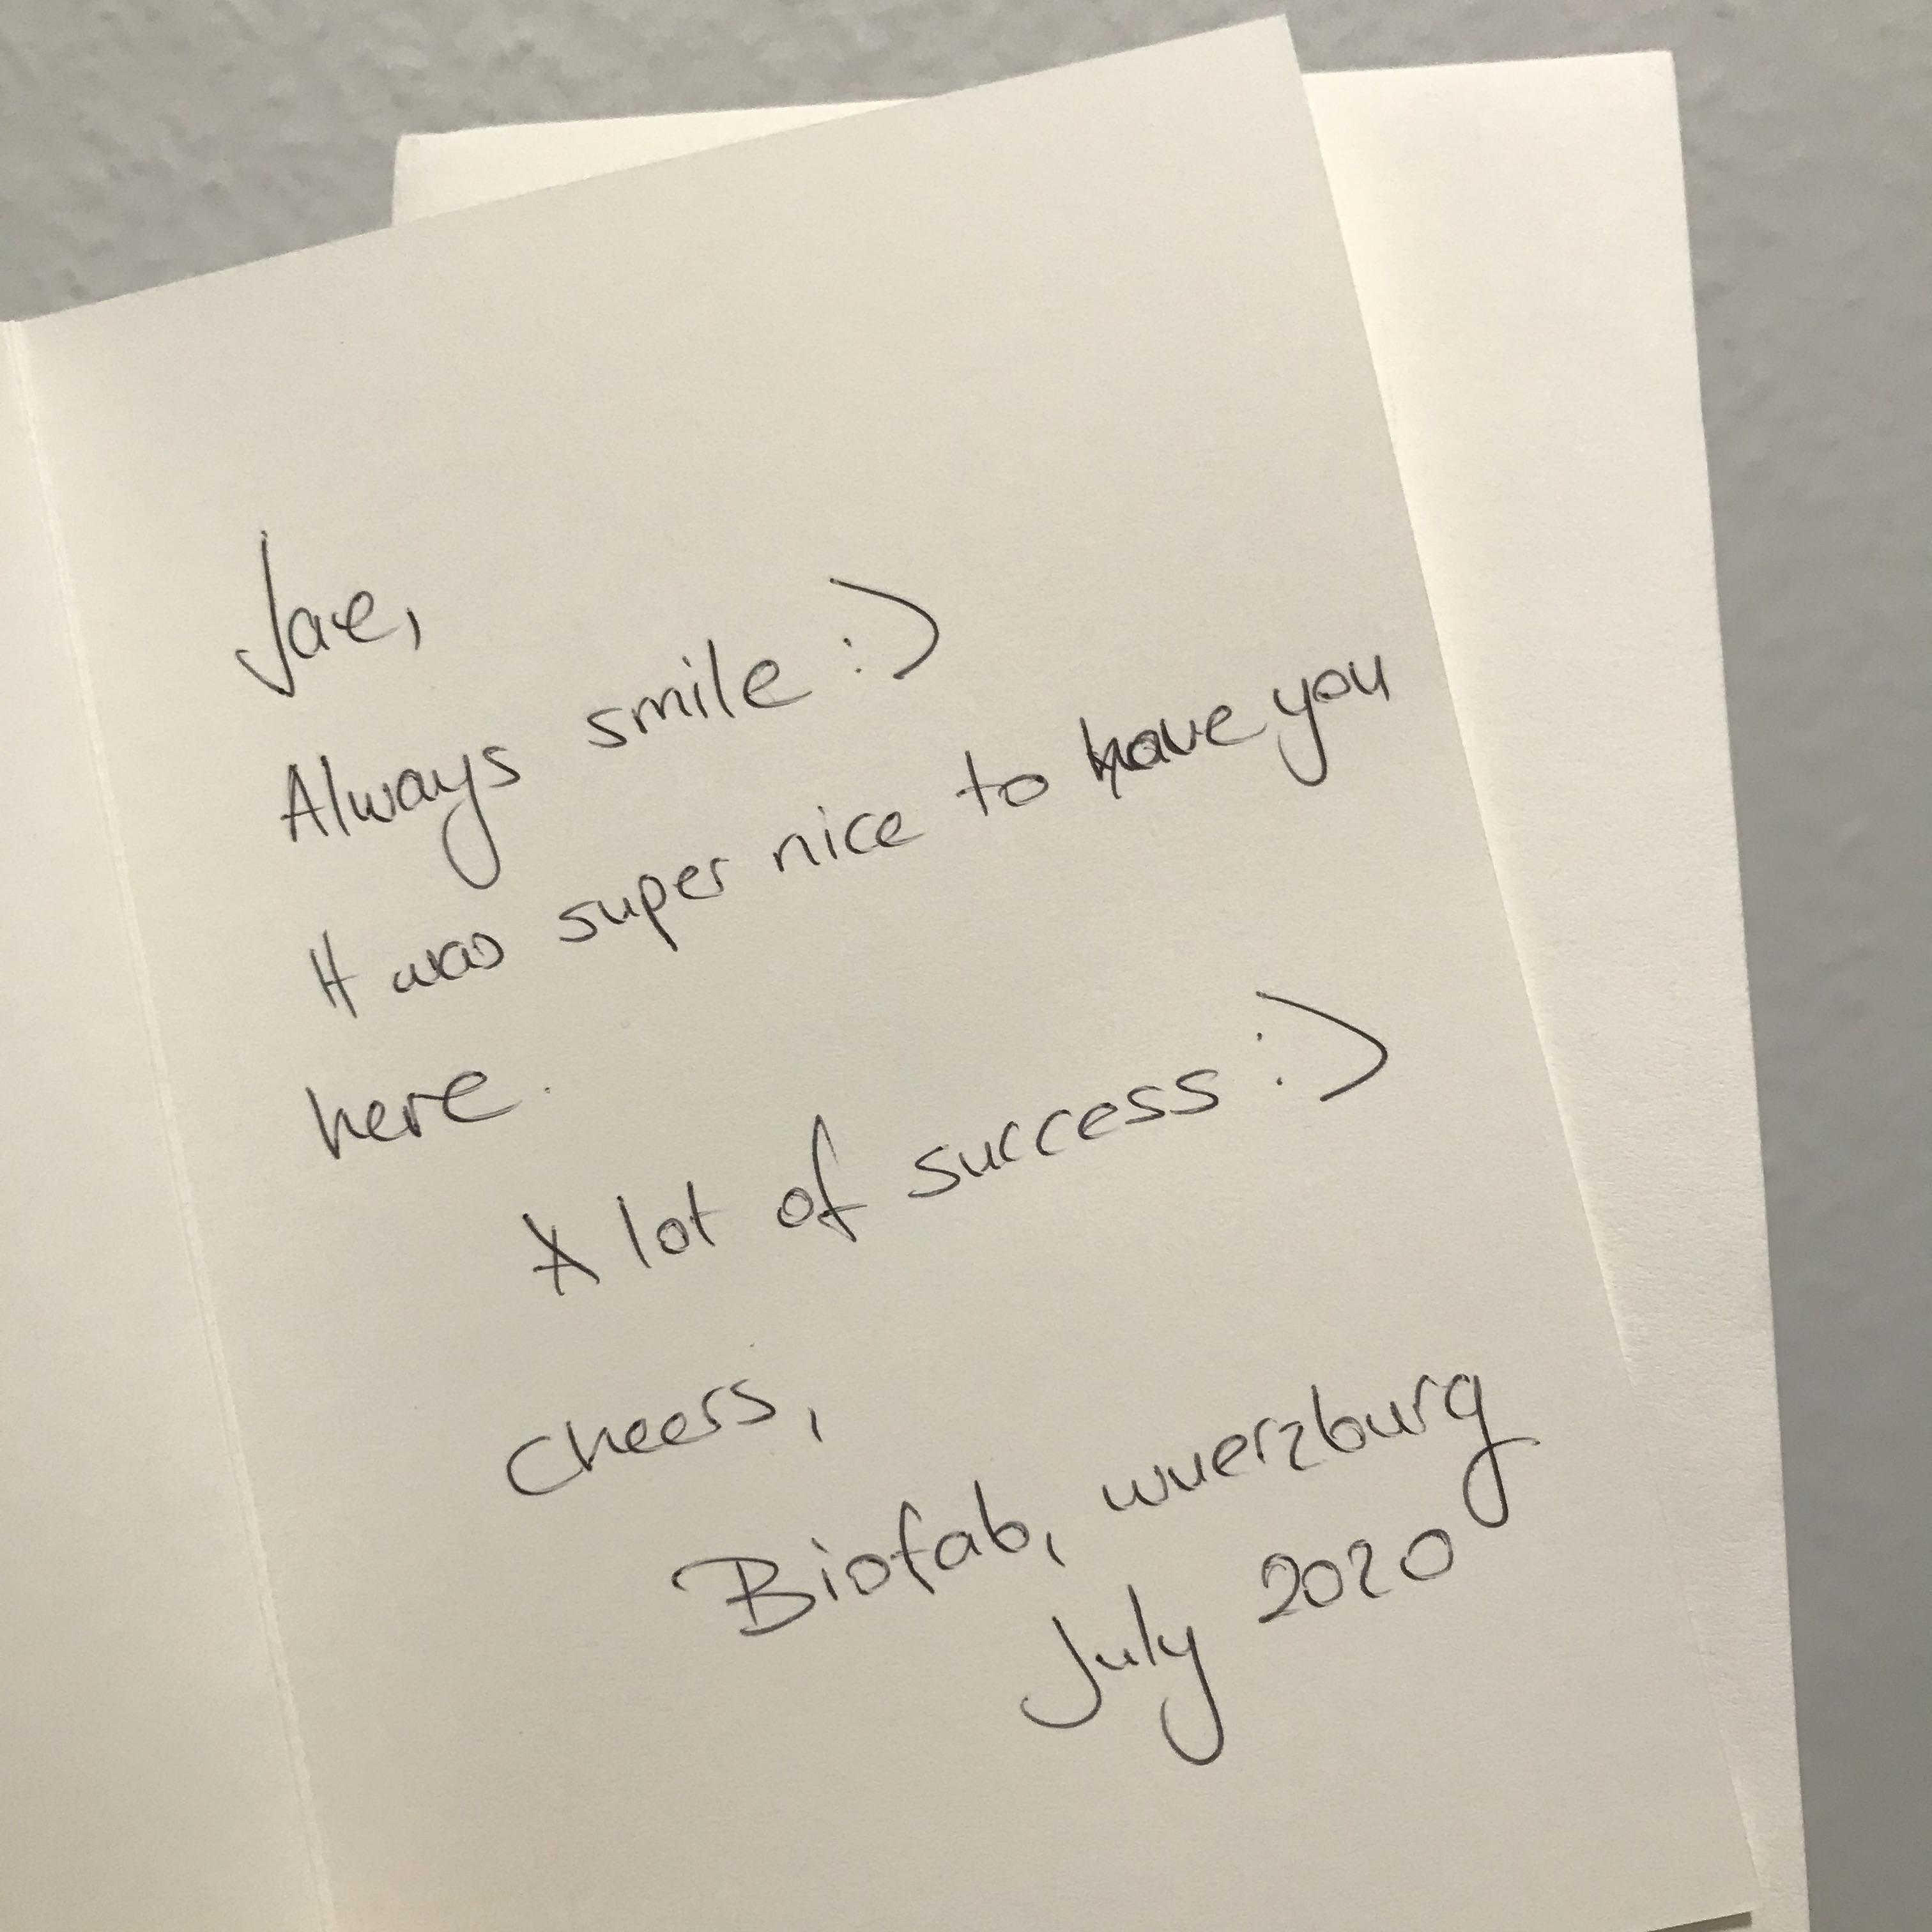 Jae,
Always smile :)
It was super nice to have you
here.
A lot of success :)
Cheers,
Biofab, wuerzburg
July 2020